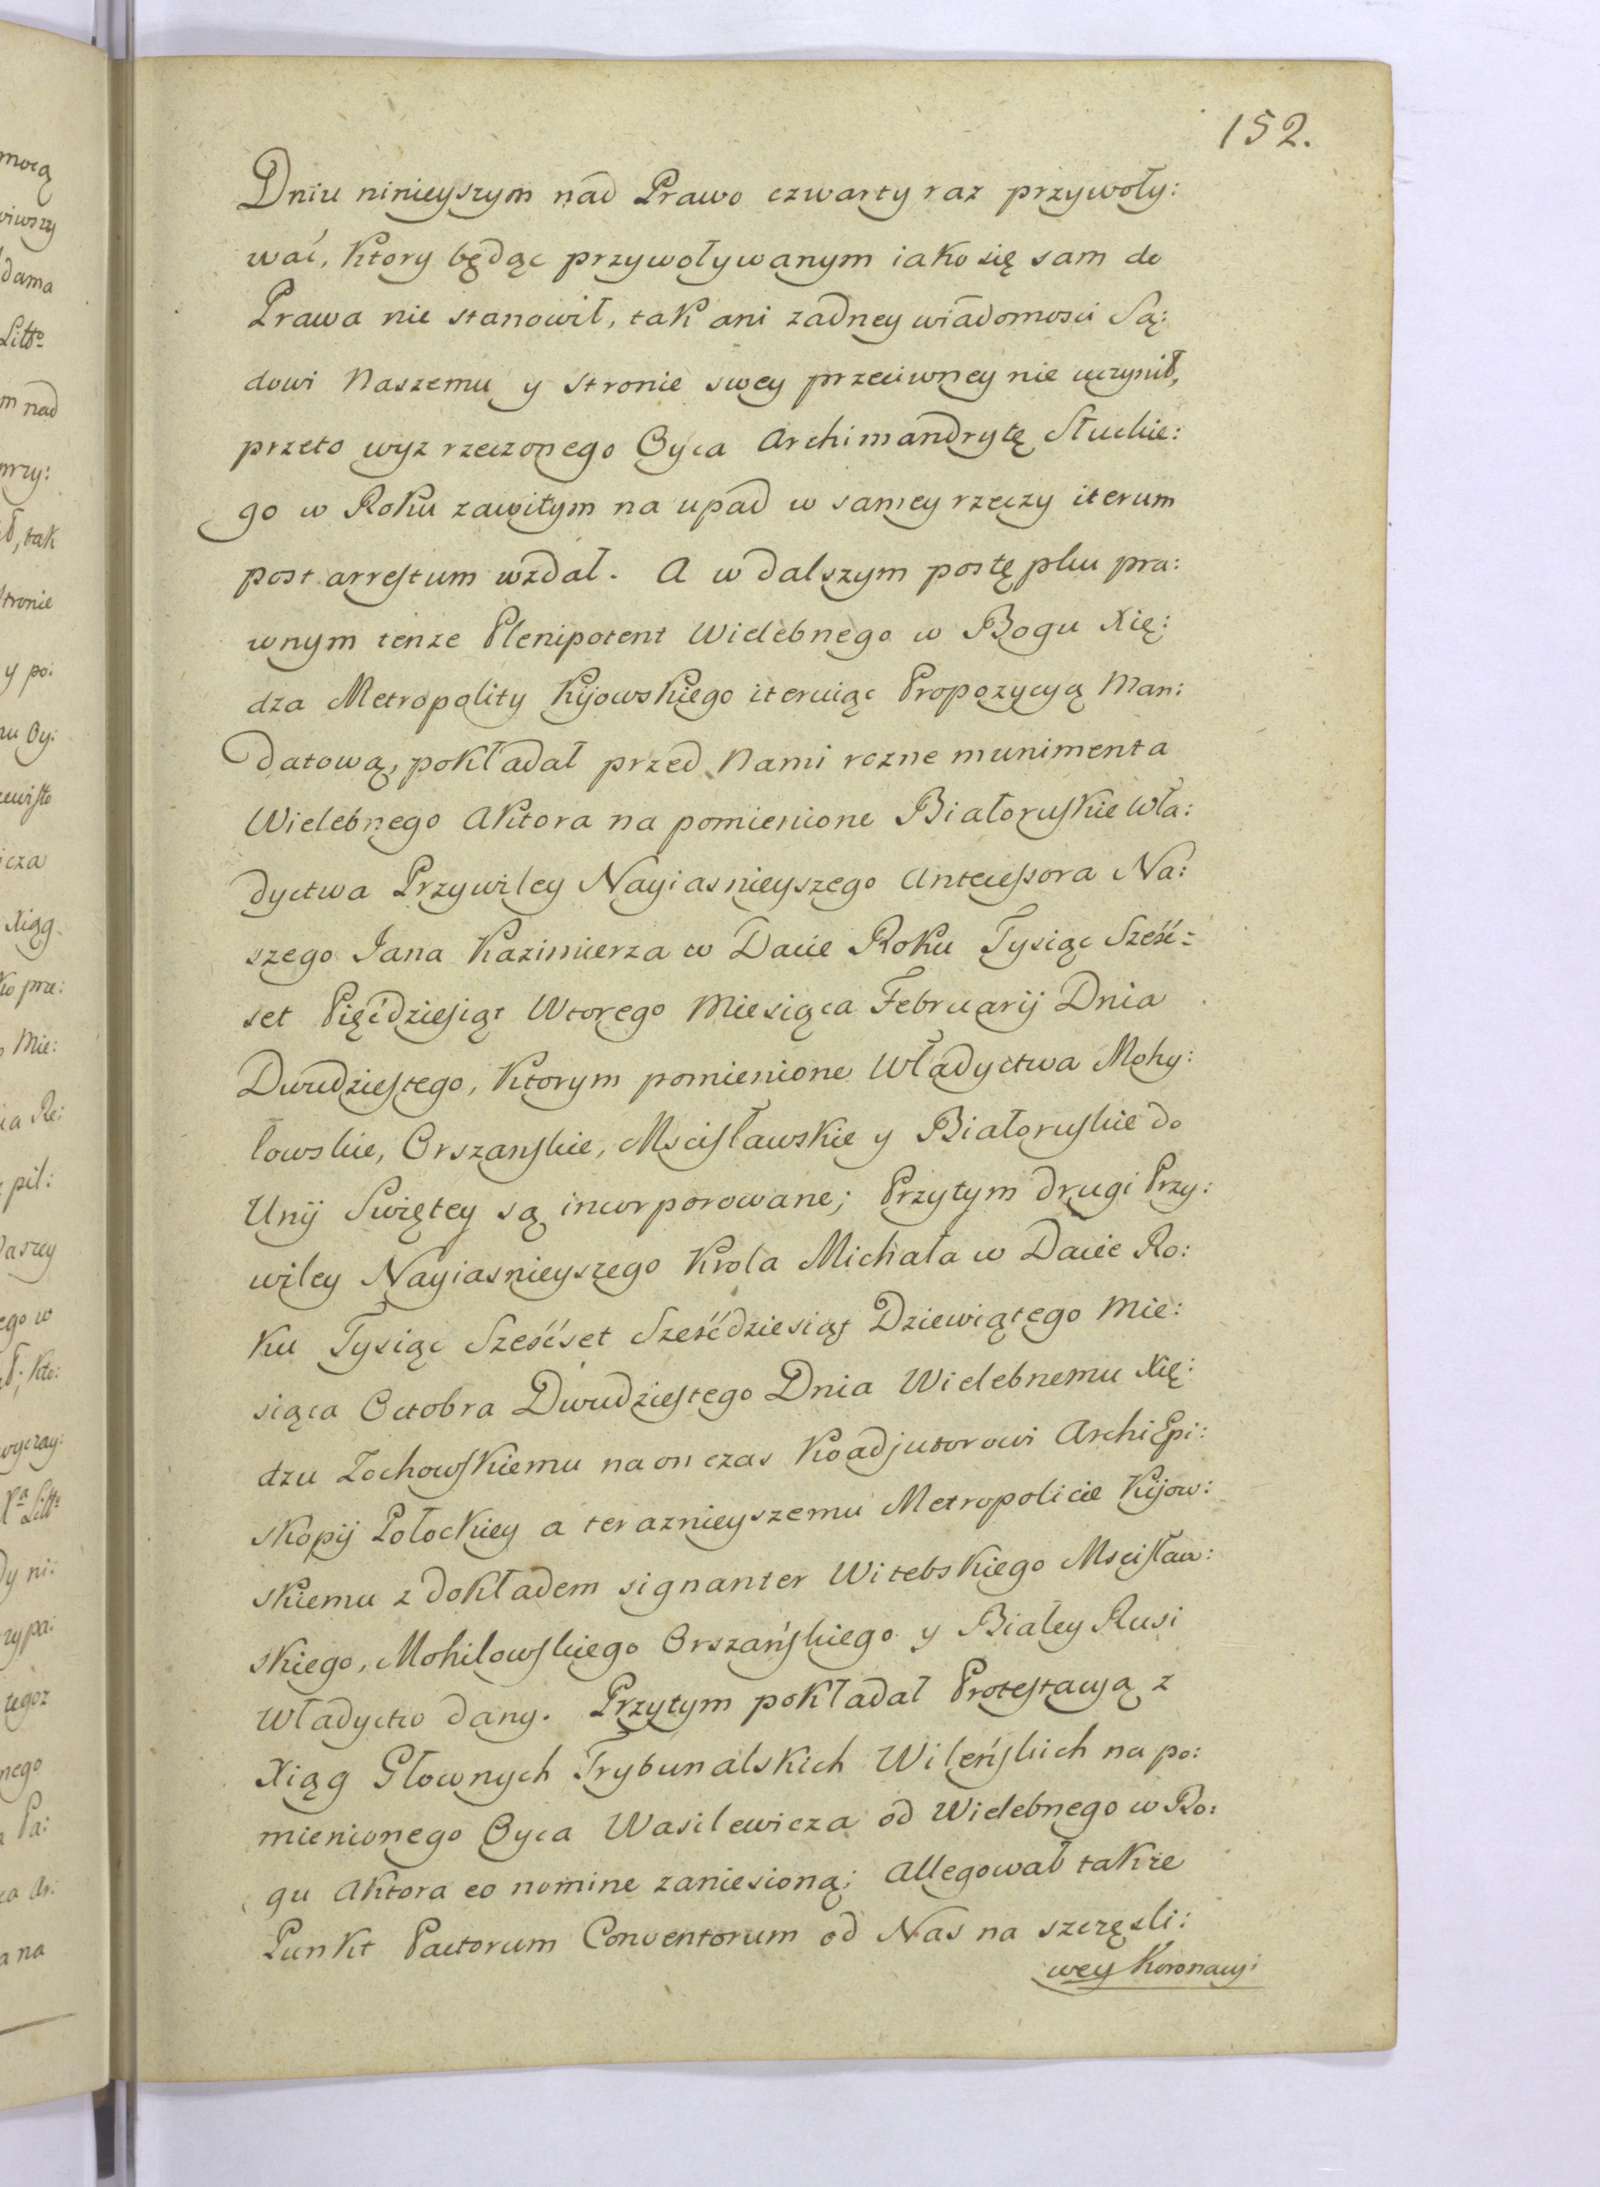 152.
Dniu ninieyszym nad Prawo czwarty raz przywoły:
wać, Ktory będąc przywoływanym iako się sam do
Prawa nie stanowił, tak ani zadney wiadomosci Są:
dowi Naszemu y stronie swey przeciwney nie uczynił,
przeto wyz rzeczonego Oyca Archimandrytę Słuckie:
go w Roku zawitym na upad w samey rzeczy iterum
post arrestum wzdał. A w dalszym postępku pra:
wnym tenze Plenipotent Wielebnego w Bogu Xię:
dza Metropolity Kijowskiego iteruiąc Propozycyą Man:
datową, pokładał przed Nami rozne munimenta
Wielebnego Aktora na pomienione Białoruskie Wła:
dyctwa Przywiley Nayiasnieyszego Antecessora Na:
szego Jana Kazimierza w Dacie Roku Tysiąc Sześć:
set Pięćdziesiąt Wtorego Miesiąca Februarij Dnia
Dwudziestego, Ktorym pomienione Władyctwa Mohy:
lowskie, Orszanskie, Mscisławskie y Białoruskie do
Unij Swiętey są incorporowane; Przytym drugi Przy:
wiley Nayiasnieyszego Krola Michała w Dacie Ro:
ku Tysiąc Sześćset Sześćdziesiąt Dziewiątego Mie:
siąca Octobra Dwudziestego Dnia Wielebnemu Xię:
dzu Zochowskiemu na on czas Koadjutorowi ArchiEpi:
skopij Połockiey a teraznieyszemu Metropolicie Kijow:
skiemu z dokładem signanter Witebskiego Mscisław:
skiego, Mohilowskiego Orszańskiego y Białey Rusi
Władyctw dany. Przytym pokładał Protestacyą z
Xiąg Głownych Trybunalskich Wileńskich na po:
mienionego Oyca Wasilewicza od Wielebnego w Bo:
gu Aktora eo nomine zaniesioną; Allegował także
Punkt Pactorum Conventorum od Nas na szczęsli:
wey Koronacyi